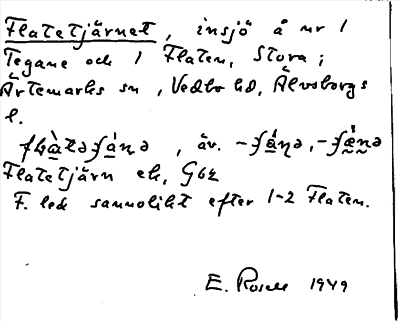 Flatetjärnet, insjö å nr 1
Tegane och 1 Flaten, Stora;
Ärtemarks sn, Vedbo hd, Älvsborgs
l.
, äv.
Flatetjärn ek, G62
F. led sannolikt efter 1-2 Flaten.
E. Rosell 1949